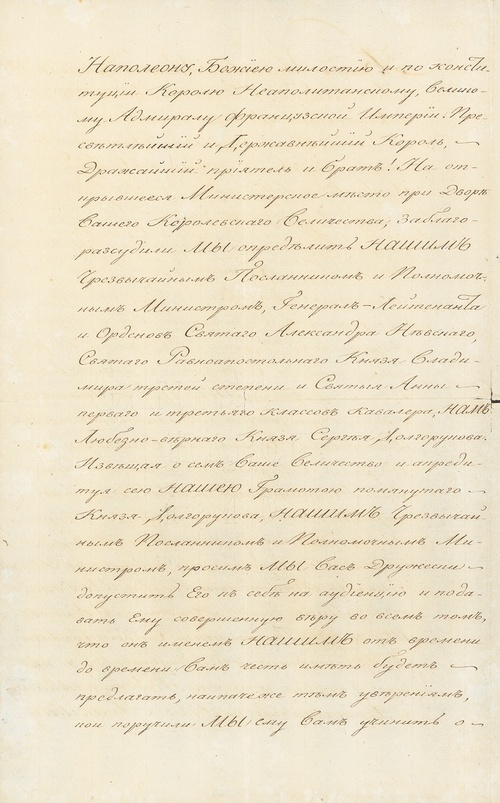 Наполеону, Божіею милостію и по консти-
туціи Королю Неаполитанскому, Велико-
му Адмиралу французской Имперіи. Пре-
свѣтлѣйшій и Державнѣйшій Король,
Дражайшій пріятель и братъ! На от-
крывшееся Министерское мѣсто при Дворѣ
Вашего Королевскаго Величества, заблаго-
разсудили МЫ опредѣлить НАШИМЪ
Чрезвычайнымъ Посланникомъ и Полномоч-
нымъ Министромъ, Генералъ-Лейтенанта
и Орденовъ Святаго Александра Невскаго,
Святаго Равноапостольнаго Князя Влади-
мира третей степени и Святыя Анны
перваго и третьяго классовъ Кавалера, НАМЪ
Любезно-вѣрнаго Князя Сергѣя Долгорукова.
Извѣщая о семъ Ваше Величество и акреди-
туя сею НАШЕЮ Грамотою помянутаго
Князя Долгорукова, НАШИМЪ Чрезвычай-
нымъ Посланникомъ и Полномочнымъ Ми-
нистромъ, просимъ МЫ Васъ Дружески
допустить Его къ себѣ на аудіенцію и пода-
вать Ему совершенную вѣру во всемъ томъ,
что онъ именемъ НАШИМЪ отъ времени
до времени Вамъ честь имѣть будетъ
предлагать, наипаче же тѣмъ увѣреніямъ,
кои поручили МЫ ему Вамъ учинить о